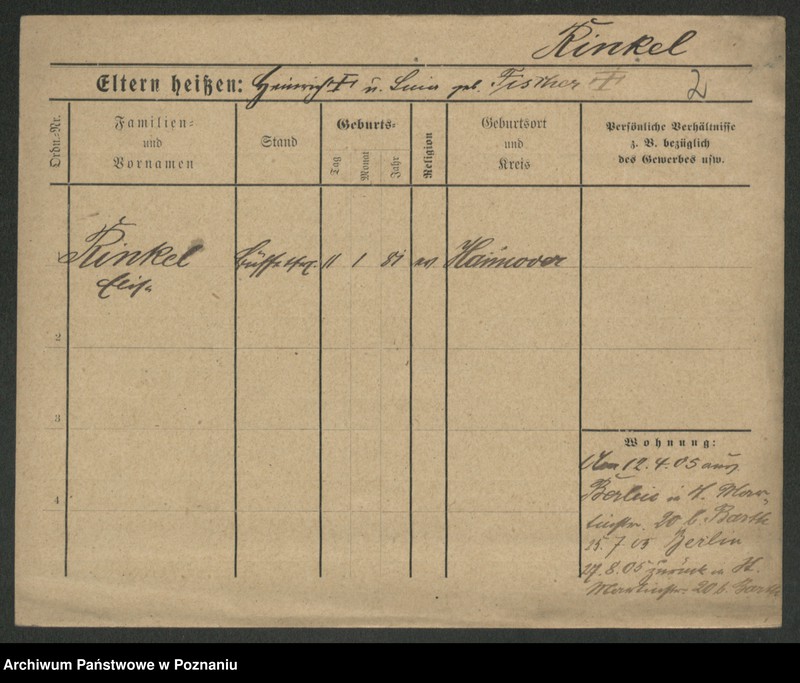 Kinkel
Eltern heißen: Heinrich † u. Luise geb. Fischer †
2
Ordn.-Nr.
Familien-
und
Vornamen
Stand
Geburts-
Tag
Monat
Jahr
Religion
Geburtsort
und
Kreis
Persönliche Verhältnisse
z. B. bezüglich
des Gewerbes usw.
Kinkel 11 1 81 ev Hannover
Elise
2
3
4
Wohnung:
12.4.05 aus
Berlin in St. Mar-
tinstr. 20 b. Barth
15.7.05 Berlin
27.8.05 zurück n St.
Martinstr. 20 b. Barth
Archiwum Państwowe w Poznaniu